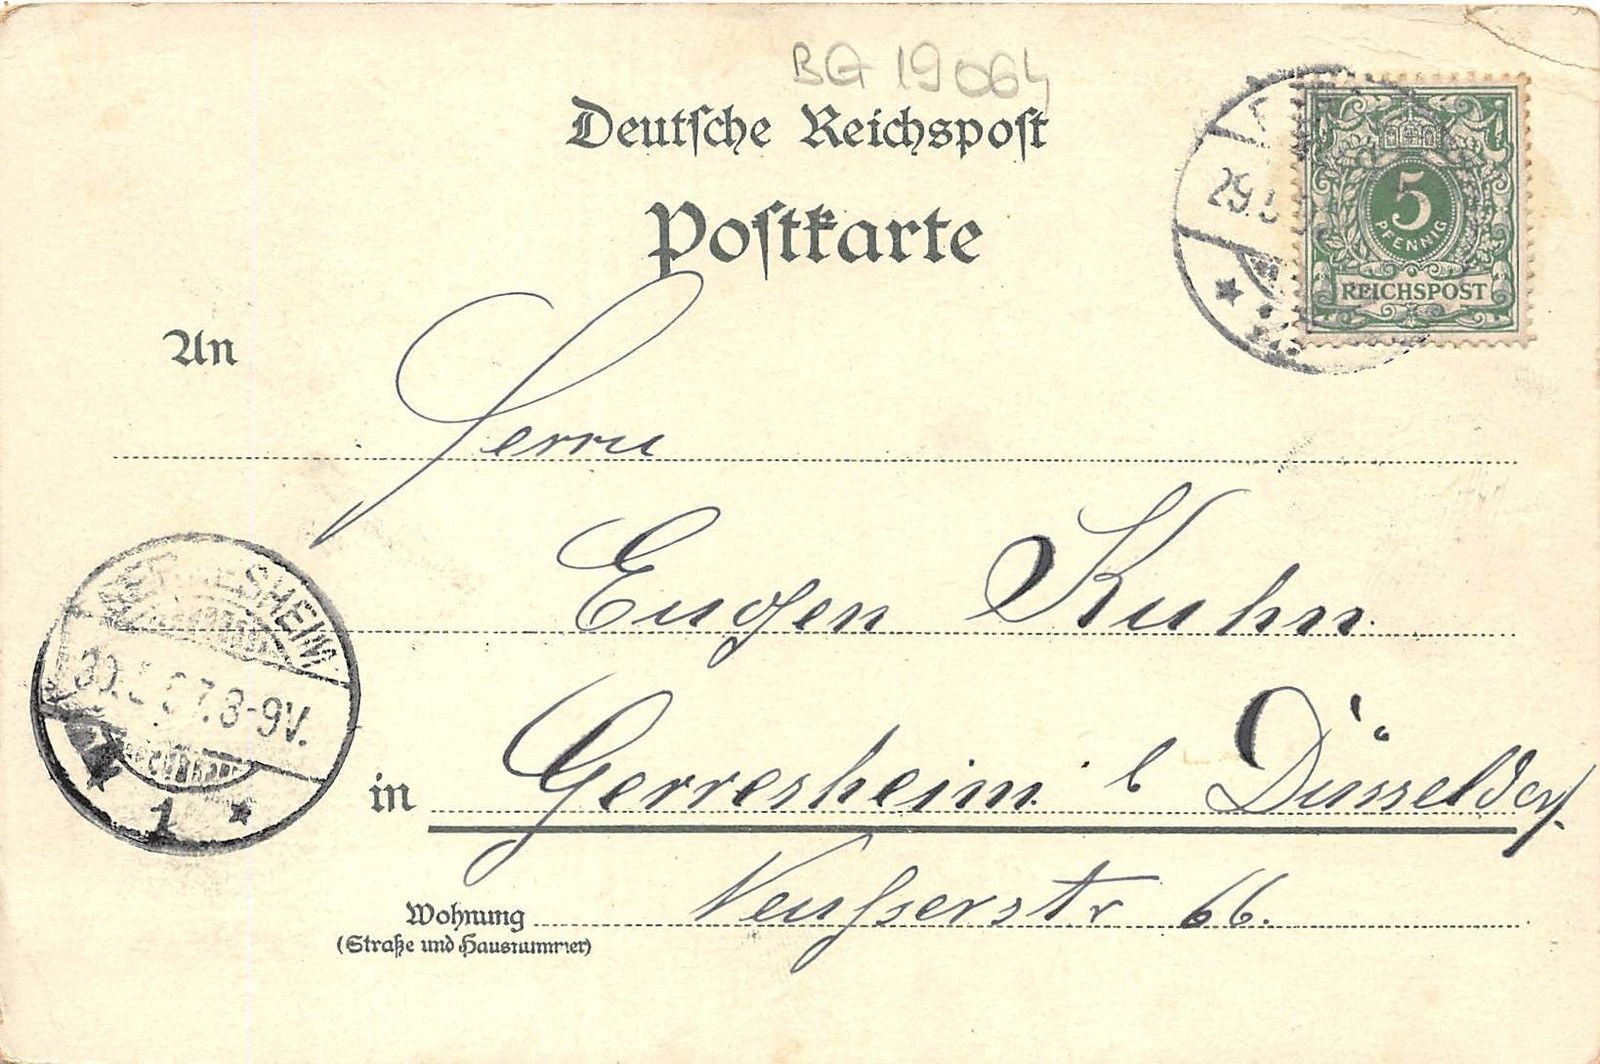 BG 19064
Deutsche Reichspost
Postkarte
5
PFENNIG
REICHSPOST
29.
An
Herrn
Eugen Kuhn.
8-9V.
1
in Gerresheim b Düsseldorf.
Neusserstr 66.
Wohnung
(Straße und Hausnummer)